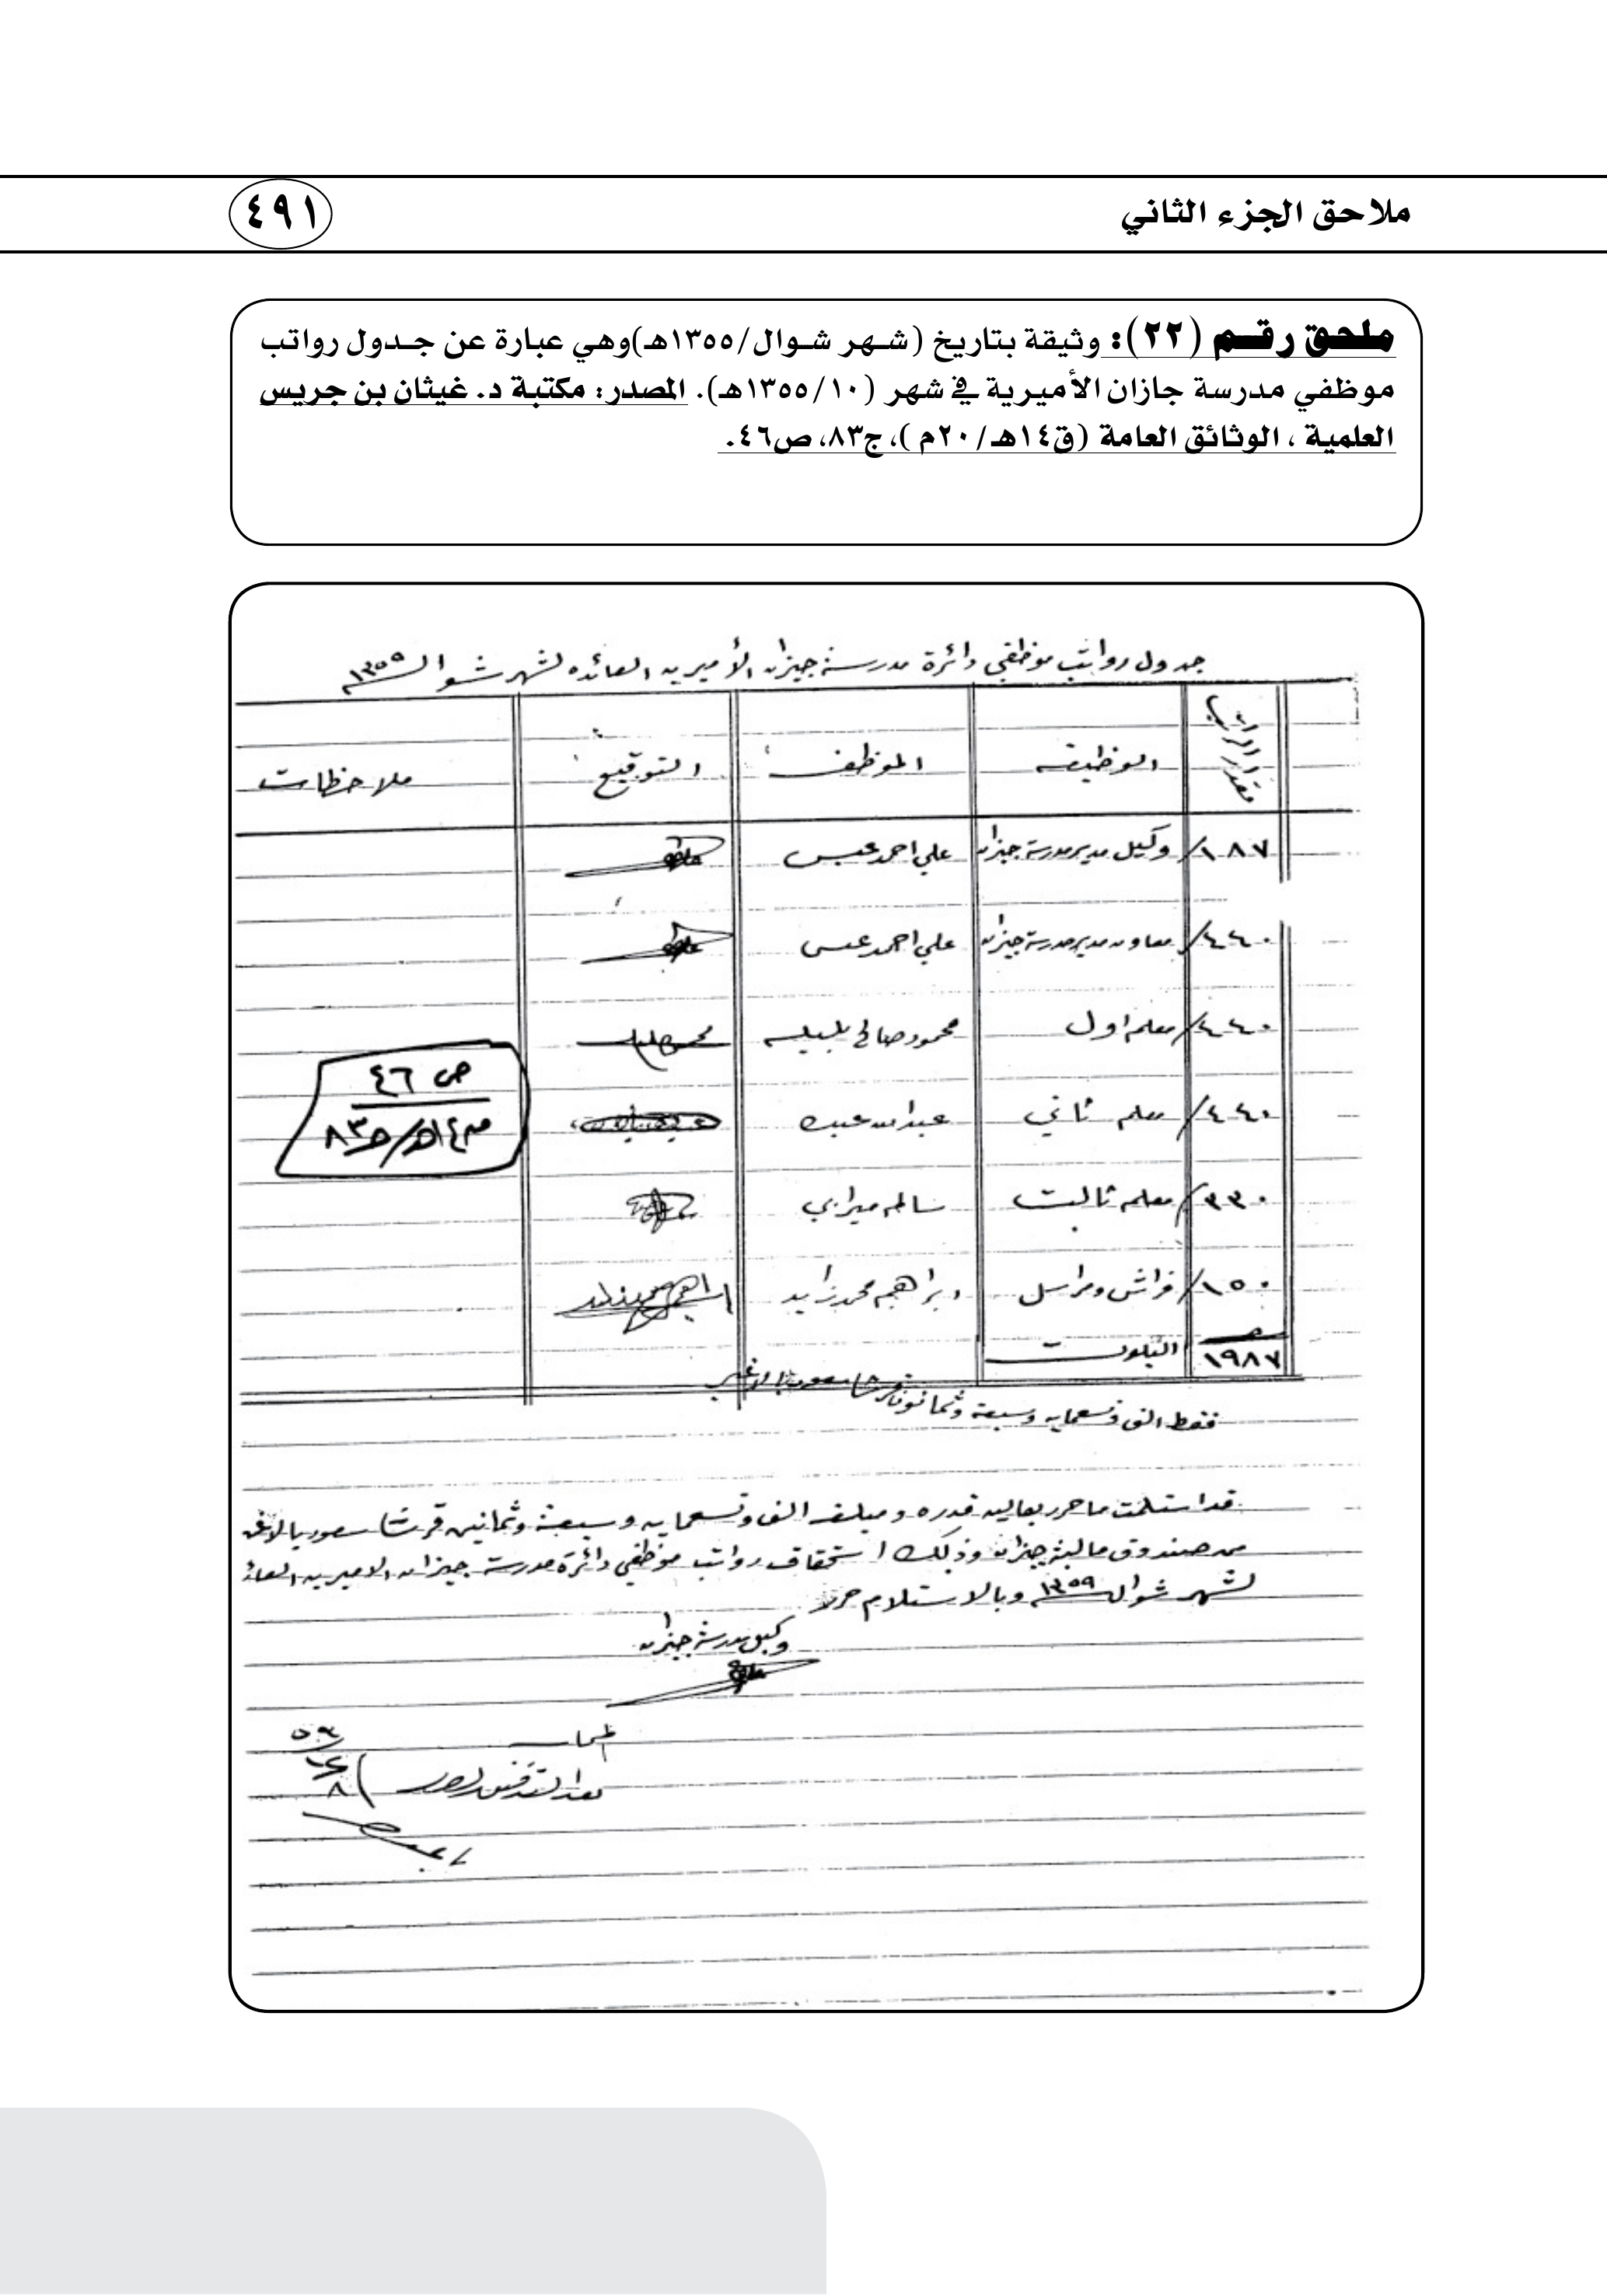 ملاحق الجزء الثاني
٤٩١
ملحق رقم (٢٢): وثيقة بتاريخ (شهر شوال/١٣٥٥هـ)وهي عبارة عن جدول رواتب
موظفي مدرسة جازان الأميرية في شهر (١٣٥٥/١٠هـ). المصدر: مكتبة د. غيثان بن جريس
العلمية ، الوثائق العامة (ق١٤هـ/٢٠م )، ج٨٣، ص٤٦.
جدول رواتب موظفي دائرة مدرسة جيزان الأميريه العائده لشهر شوال ١٣٥٩
مقدار الراتب الوظيفه الموظف التوقيع ملاحظات
١٨٧/ وكيل مدير مدرسة جيزان علي احمد عيسى
٤٤٠/ معاون مدير مدرسة جيزان علي احمد عيسى
٤٤٠/ معلم اول محمود صالح
٤٤٠/ معلم ثاني عبدالله
٣٣٠/ معلم ثالث سالم ميرابي
١٥٠/ فراش ومراسل ابراهيم محمد زايد
١٩٨٧
ص ٤٦
٨٣
فقط الف وتسعمايه وسبعة وثمانون قرشا سعوديا لاغير
قد استلمت ما حرر بعاليه قدره ومبلغه الف وتسعمايه وسبعة وثمانين قرشا سعوديا لاغير
من صندوق مالية جيزان وذلك استحقاق رواتب موظفي دائرة مدرسة جيزان الاميريه
لشهر شوال ١٣٥٩ وبالاستلام حرر
وكيل مدرسة جيزان